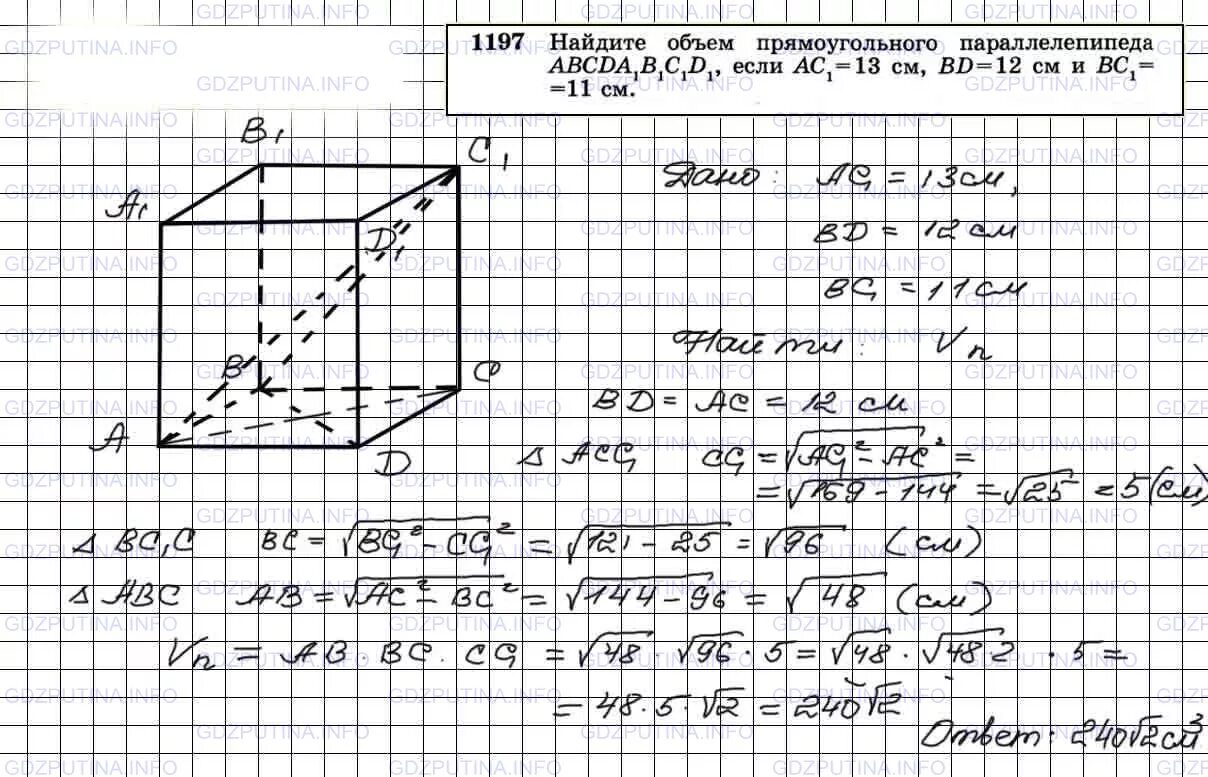 1197 Найдите объем прямоугольного параллелепипеда
ABCDA₁B₁C₁D₁, если AC₁=13 см, BD=12 см и BC₁=
=11 см.
B₁
C₁
A₁
D₁
B
C
A
D
Дано: AC₁ = 13 см,
BD = 12 см
BC₁ = 11 см
Найти: Vп
BD = AC = 12 см
Δ ACC₁ CC₁ = √AC₁² − AC² =
= √169 − 144 = √25 = 5 (см)
Δ BC₁C BC = √BC₁² − CC₁² = √121 − 25 = √96 (см)
Δ ABC AB = √AC² − BC² = √144 − 96 = √48 (см)
Vп = AB · BC · CC₁ = √48 · √96 · 5 = √48 · √48·2 · 5 =
= 48 · 5 · √2 = 240√2
Ответ: 240√2 см³
GDZPUTINA.INFO